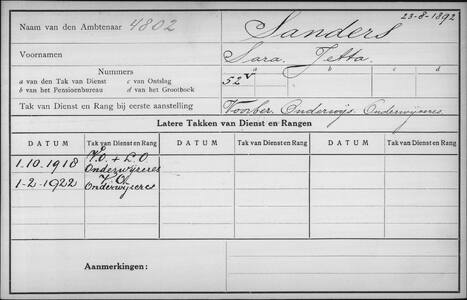 23-8-1892
Naam van den Ambtenaar 4802 Sanders
Voornamen Sara Jetta.
Nummers a b c d
a van den Tak van Dienst c van Ontslag 52v
b van het Pensioenbureau d van het Grootboek
Tak van Dienst en Rang bij eerste aanstelling Voorber. Onderwijs. Onderwijzeres.
Latere Takken van Dienst en Rangen
DATUM Tak van Dienst en Rang DATUM Tak van Dienst en Rang DATUM Tak van Dienst en Rang
1.10.1918 V.O. + L.O
Onderwijzeres
1-2-1922 V.O.
Onderwijzeres
Aanmerkingen: